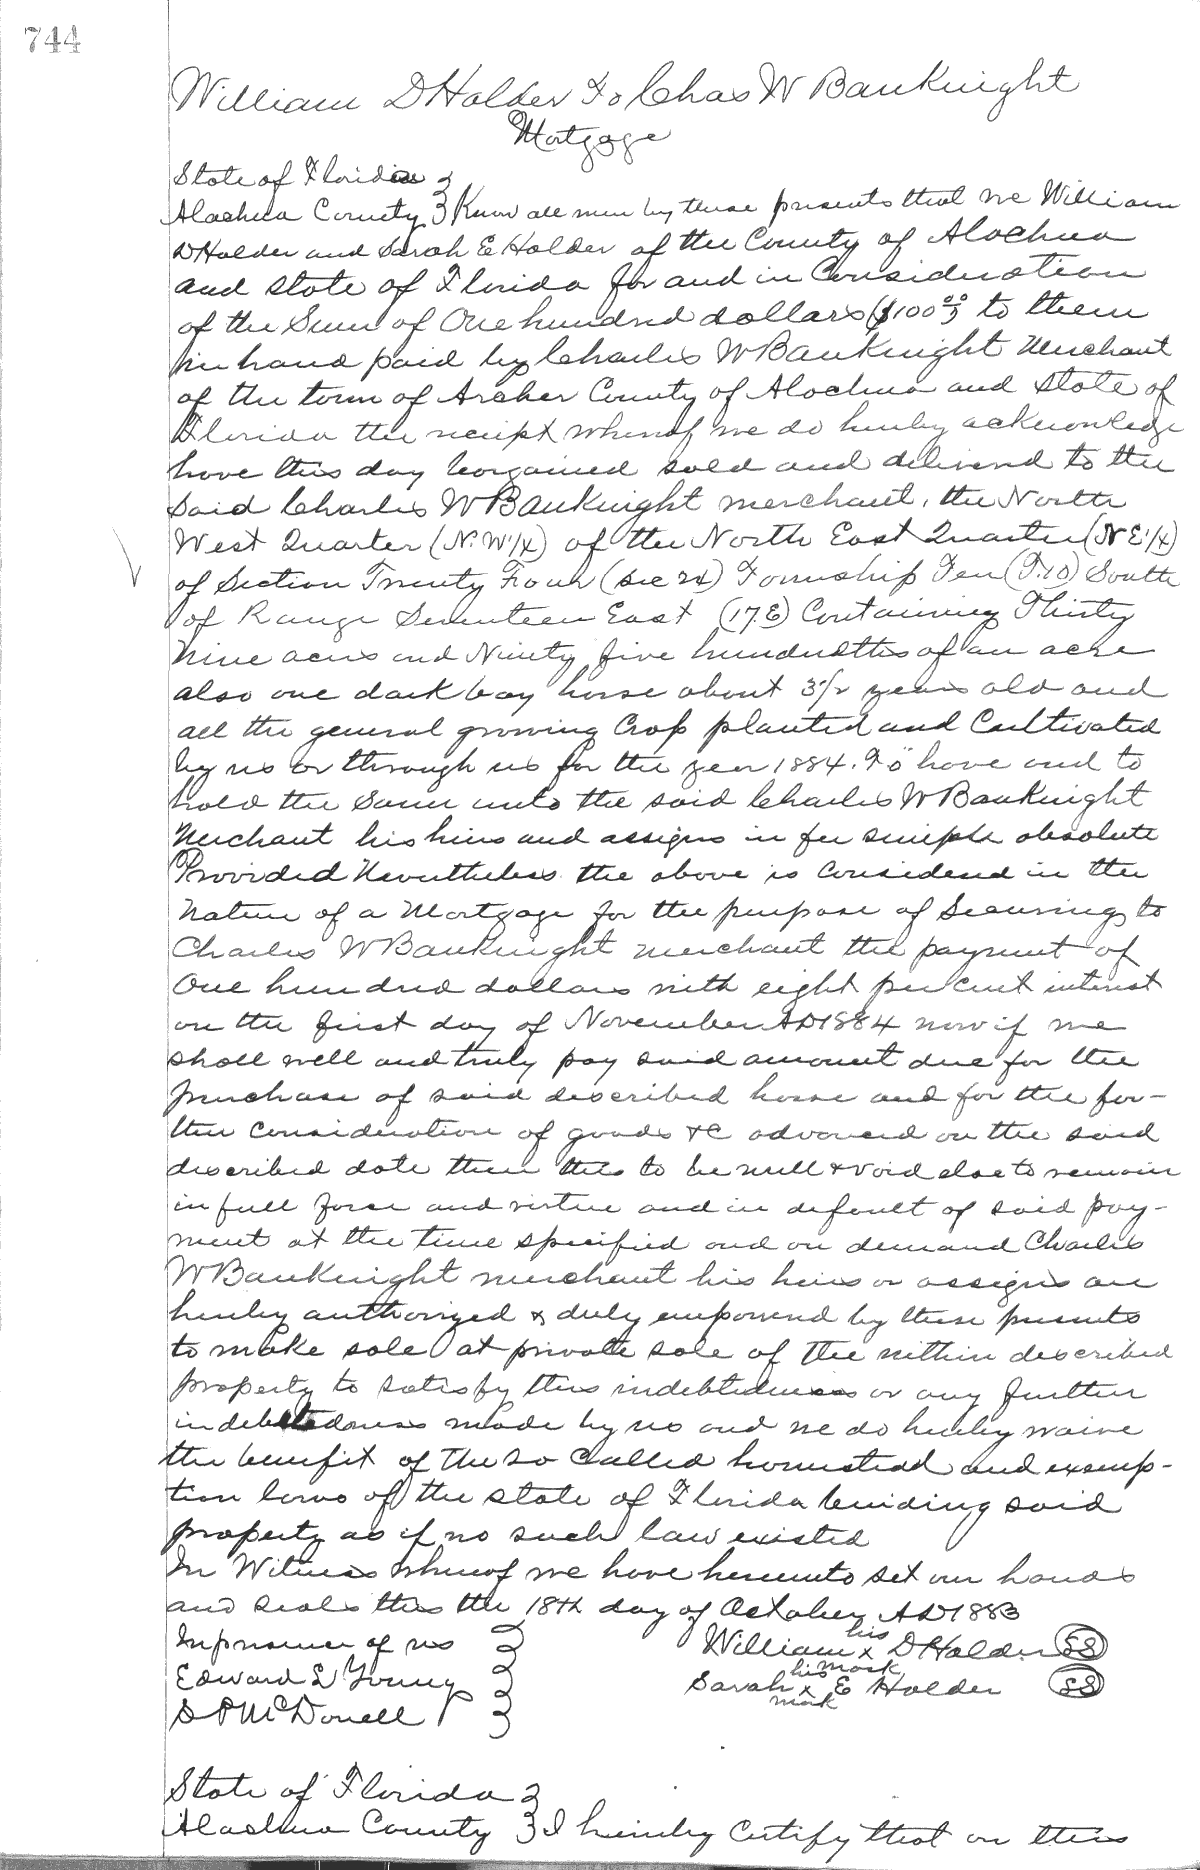 744
William D Holder To Chas W Bauknight
Mortgage
State of Florida }
Alachua County } Know all men by these presents that we William
D Holder and Sarah E Holder of the County of Alachua
and State of Florida for and in Consideration
of the Sum of One hundred dollars ($100 00) to them
in hand paid by Charles W Bauknight Merchant
of the town of Archer County of Alachua and State of
Florida the receipt whereof we do hereby acknowledge
have this day bargained sold and delivered to the
Said Charles W Bauknight merchant, the North
West Quarter (N.W 1/4) of the North East Quarter (N E 1/4)
of Section Twenty Four (Sec 24) Township Ten (T.10) South
of Range Seventeen East (17.E) Containing Thirty
Nine acres and Ninety five hundredths of an acre
also one dark bay horse about 3 1/2 years old and
all the general growing Crop planted and Cultivated
by us or through us for the year 1884. To have and to
hold the Same unto the said Charles W Bauknight
Merchant his heirs and assigns in fee simple absolute
Provided Nevertheless the above is Considered in the
Nature of a Mortgage for the purpose of Securing to
Charles W Bauknight merchant the payment of
One hundred dollars with eight per cent interest
on the first day of November AD 1884 now if we
shall well and truly pay said amount due for the
purchase of said described horse and for the fur-
ther Consideration of goods &c advanced on the said
described date then this to be null & void else to remain
in full force and virtue and in default of said pay-
ment at the time specified and on demand Charles
W Bauknight merchant his heirs or assigns are
hereby authorized & duly empowered by these presents
to make sale at private sale of the within described
property to satisfy this indebtedness or any further
indebtedness made by us and we do hereby waive
the benefit of the so Called homestead and exemp-
tion laws of the state of Florida binding said
property as if no such law existed
In Witness Whereof we have hereunto set our hands
and seals this the 18th day of October AD 1883
In presence of us } William his x mark D Holder SS
Edward L Young } Sarah his x mark E Holder SS
S P McDonell }
State of Florida }
Alachua County } I hereby Certify that on this